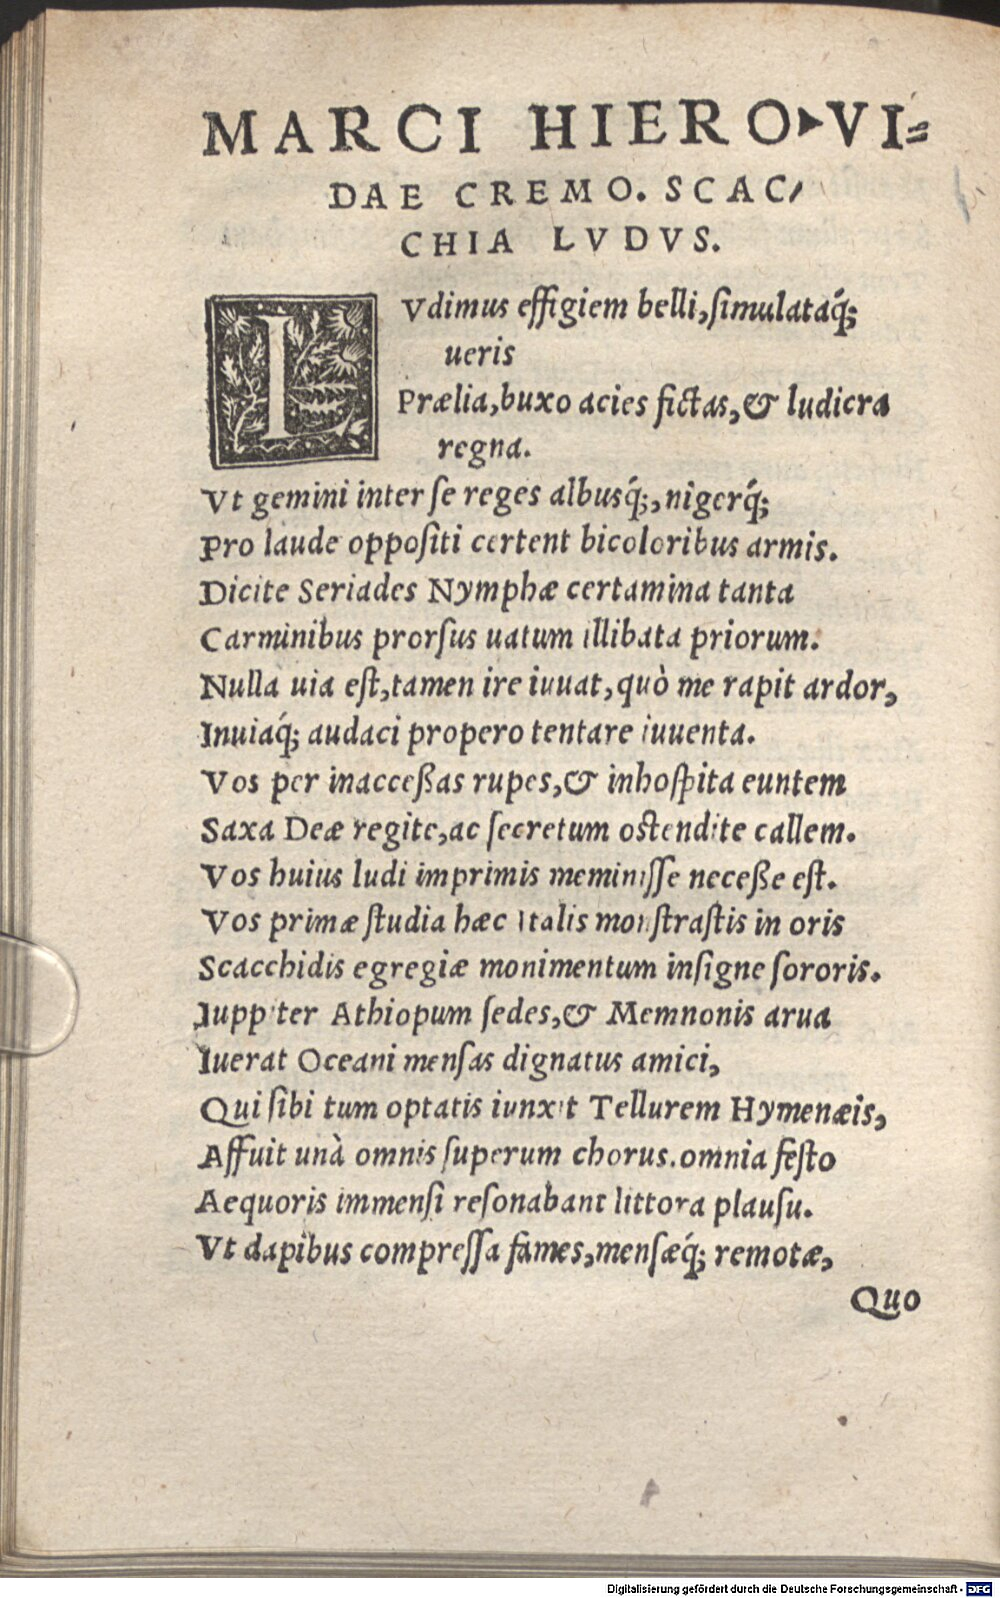 MARCI HIERO▸VI⸗
DAE CREMO. SCAC/
CHIA LVDVS.
LVdimus effigiem belli, ſimulataq́;
ueris
Prælia, buxo acies fictas, & ludicra
regna.
Vt gemini inter ſe reges albusq́;, nigerq́;
Pro laude oppoſiti certent bicoloribus armis.
Dicite Seriades Nymphæ certamina tanta
Carminibus prorſus uatum illibata priorum.
Nulla uia eſt, tamen ire iuuat, quò me rapit ardor,
Inuiaq́; audaci propero tentare iuuenta.
Vos per inacceßas rupes, & inhoſpita euntem
Saxa Deæ regite, ac ſecretum oſtendite callem.
Vos huius ludi imprimis meminiſſe neceße eſt.
Vos primæ ſtudia hæc Italis monſtraſtis in oris
Scacchidis egregiæ monimentum inſigne ſororis.
Iuppiter Athiopum ſedes, & Memnonis arua
Iuerat Oceani menſas dignatus amici,
Qui ſibi tum optatis iunxit Tellurem Hymenæis,
Affuit unà omnis ſuperum chorus. omnia feſto
Aequoris immenſi reſonabant littora plauſu.
Vt dapibus compreſſa fames, menſæq́; remotæ,
Quo
Digitalisierung gefördert durch die Deutsche Forschungsgemeinschaft - DFG